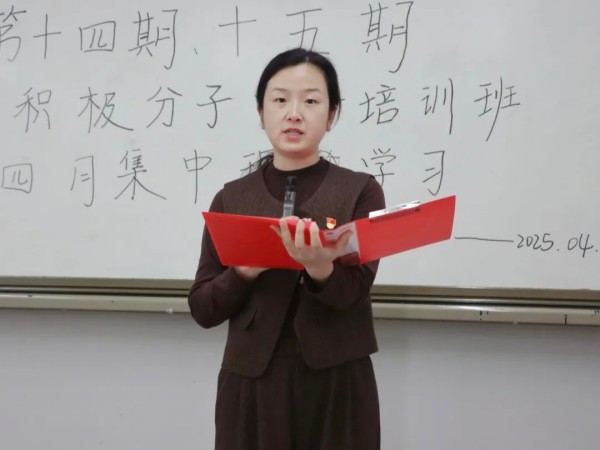 第十四期、十五期
积极分子 培训班
四月集中 学习
——2025.04.